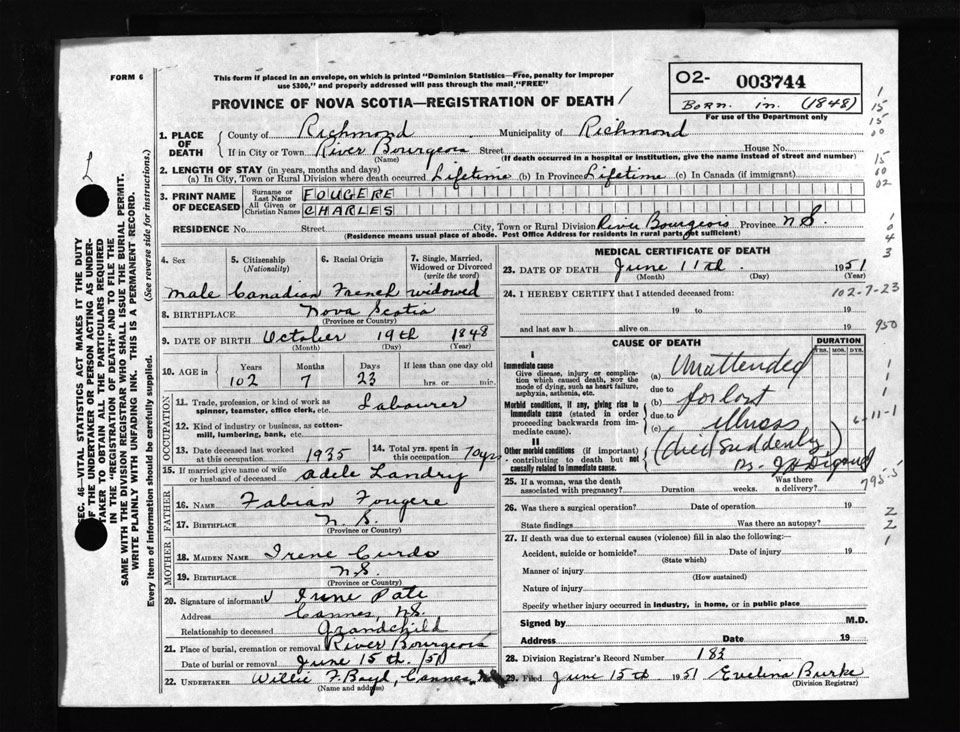 FORM 6
This form if placed in an envelope, on which is printed "Dominion Statistics—Free, penalty for improper
use $300," and properly addressed will pass through the mail "FREE"
O2- 003744
Born in (1848)
For use of the Department only
PROVINCE OF NOVA SCOTIA—REGISTRATION OF DEATH
1. PLACE OF DEATH
County of Richmond Municipality of Richmond
If in City or Town River Bourgeois Street House No.
(Name) (If death occurred in a hospital or institution, give the name instead of street and number)
2. LENGTH OF STAY (in years, months and days)
(a) In City, Town or Rural Division where death occurred Lifetime (b) In Province Lifetime (c) In Canada (if immigrant)
3. PRINT NAME OF DECEASED
Surname or Last Name FOUGERE
All Given or Christian Names CHARLES
RESIDENCE No. Street City, Town or Rural Division River Bourgeois Province N.S.
(Residence means usual place of abode. Post Office Address for residents in rural parts not sufficient)
4. Sex 5. Citizenship (Nationality) 6. Racial Origin 7. Single, Married, Widowed or Divorced (write the word)
Male Canadian French widowed
8. BIRTHPLACE Nova Scotia
(Province or Country)
9. DATE OF BIRTH October 19th 1848
(Month) (Day) (Year)
10. AGE in Years Months Days If less than one day old
102 7 23 hrs. or min.
OCCUPATION
11. Trade, profession, or kind of work as Labourer
spinner, teamster, office clerk, etc.
12. Kind of industry or business, as cotton-
mill, lumbering, bank, etc.
13. Date deceased last worked at this occupation 1935 14. Total yrs. spent in this occupation 70yrs
15. If married give name of wife or husband of deceased Adele Landry
FATHER
16. NAME Fabian Fougere
17. BIRTHPLACE N.S.
(Province or Country)
MOTHER
18. MAIDEN NAME Irene Curdo
19. BIRTHPLACE N.S.
(Province or Country)
20. Signature of informant Irene Pate
Address Cannes, N.S.
Relationship to deceased Grandchild
21. Place of burial, cremation or removal River Bourgeois
Date of burial or removal June 15th /51
22. UNDERTAKER Willie F. Boyd, Cannes, N.S.
(Name and address)
MEDICAL CERTIFICATE OF DEATH
23. DATE OF DEATH June 11th 1951
(Month) (Day) (Year)
24. I HEREBY CERTIFY that I attended deceased from: 102-7-23
19 to 19
and last saw h alive on 19 950
CAUSE OF DEATH DURATION
YRS. MOS. DYS.
I
Immediate cause
Give disease, injury or complication which caused death, NOT the mode of dying, such as heart failure, asphyxia, asthenia, etc.
(a) Unattended
due to
Morbid conditions, if any, giving rise to immediate cause (stated in order proceeding backwards from immediate cause).
(b) for last
due to
(c) illness 6-11-1
II
Other morbid conditions (if important) contributing to death but not causally related to immediate cause.
(died suddenly)
795.5
25. If a woman, was the death associated with pregnancy? Duration weeks. Was there a delivery?
26. Was there a surgical operation? Date of operation 19
State findings Was there an autopsy?
27. If death was due to external causes (violence) fill in also the following:
Accident, suicide or homicide? Date of injury 19
(State which)
Manner of injury
(How sustained)
Nature of injury
Specify whether injury occurred in industry, in home, or in public place
Signed by M.D.
Address Date 19
28. Division Registrar's Record Number 183
29. Filed June 15th 1951 Evelina Burke
(Division Registrar)
SEC. 46—VITAL STATISTICS ACT MAKES IT THE DUTY
OF THE UNDERTAKER OR PERSON ACTING AS UNDER-
TAKER TO OBTAIN ALL THE PARTICULARS REQUIRED
IN THE "REGISTRATION OF DEATH" AND TO FILE THE
SAME WITH THE DIVISION REGISTRAR WHO SHALL ISSUE THE BURIAL PERMIT.
WRITE PLAINLY WITH UNFADING INK. THIS IS A PERMANENT RECORD.
Every item of information should be carefully supplied. (See reverse side for instructions.)